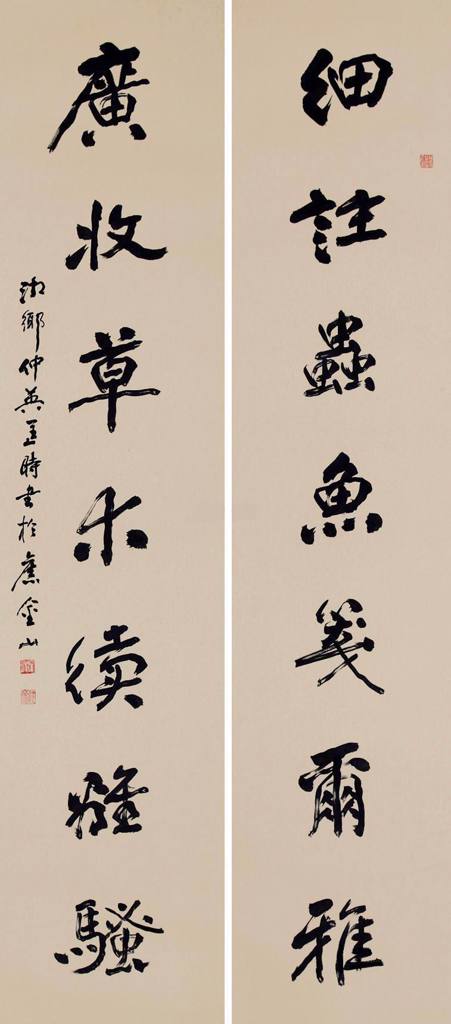 細註蟲魚箋爾雅
廣收草木續離騷
湘鄉仲英匡時書於舊金山